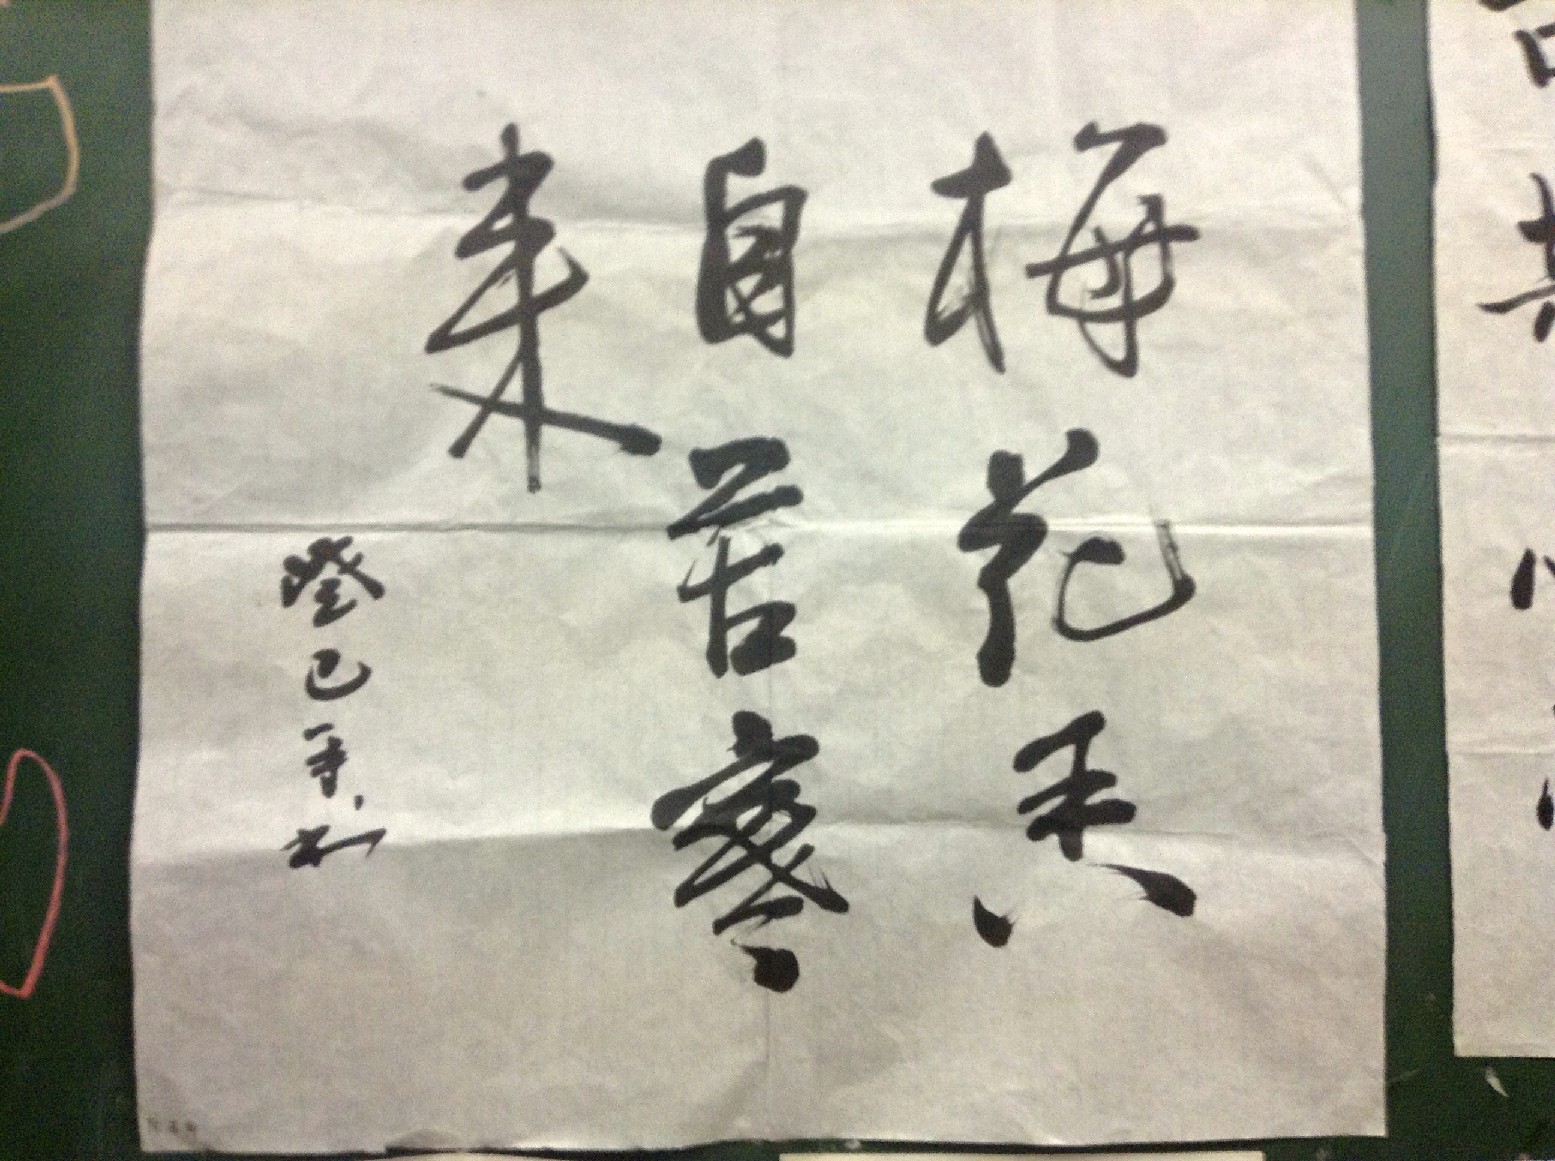 梅花香
自苦寒
来
癸巳年